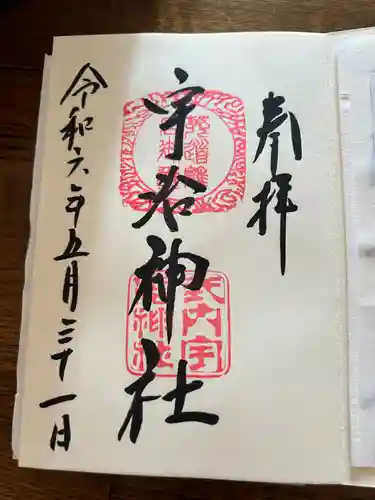 奉拝
宇治神社
令和六年五月三十一日
式内宇
治神社